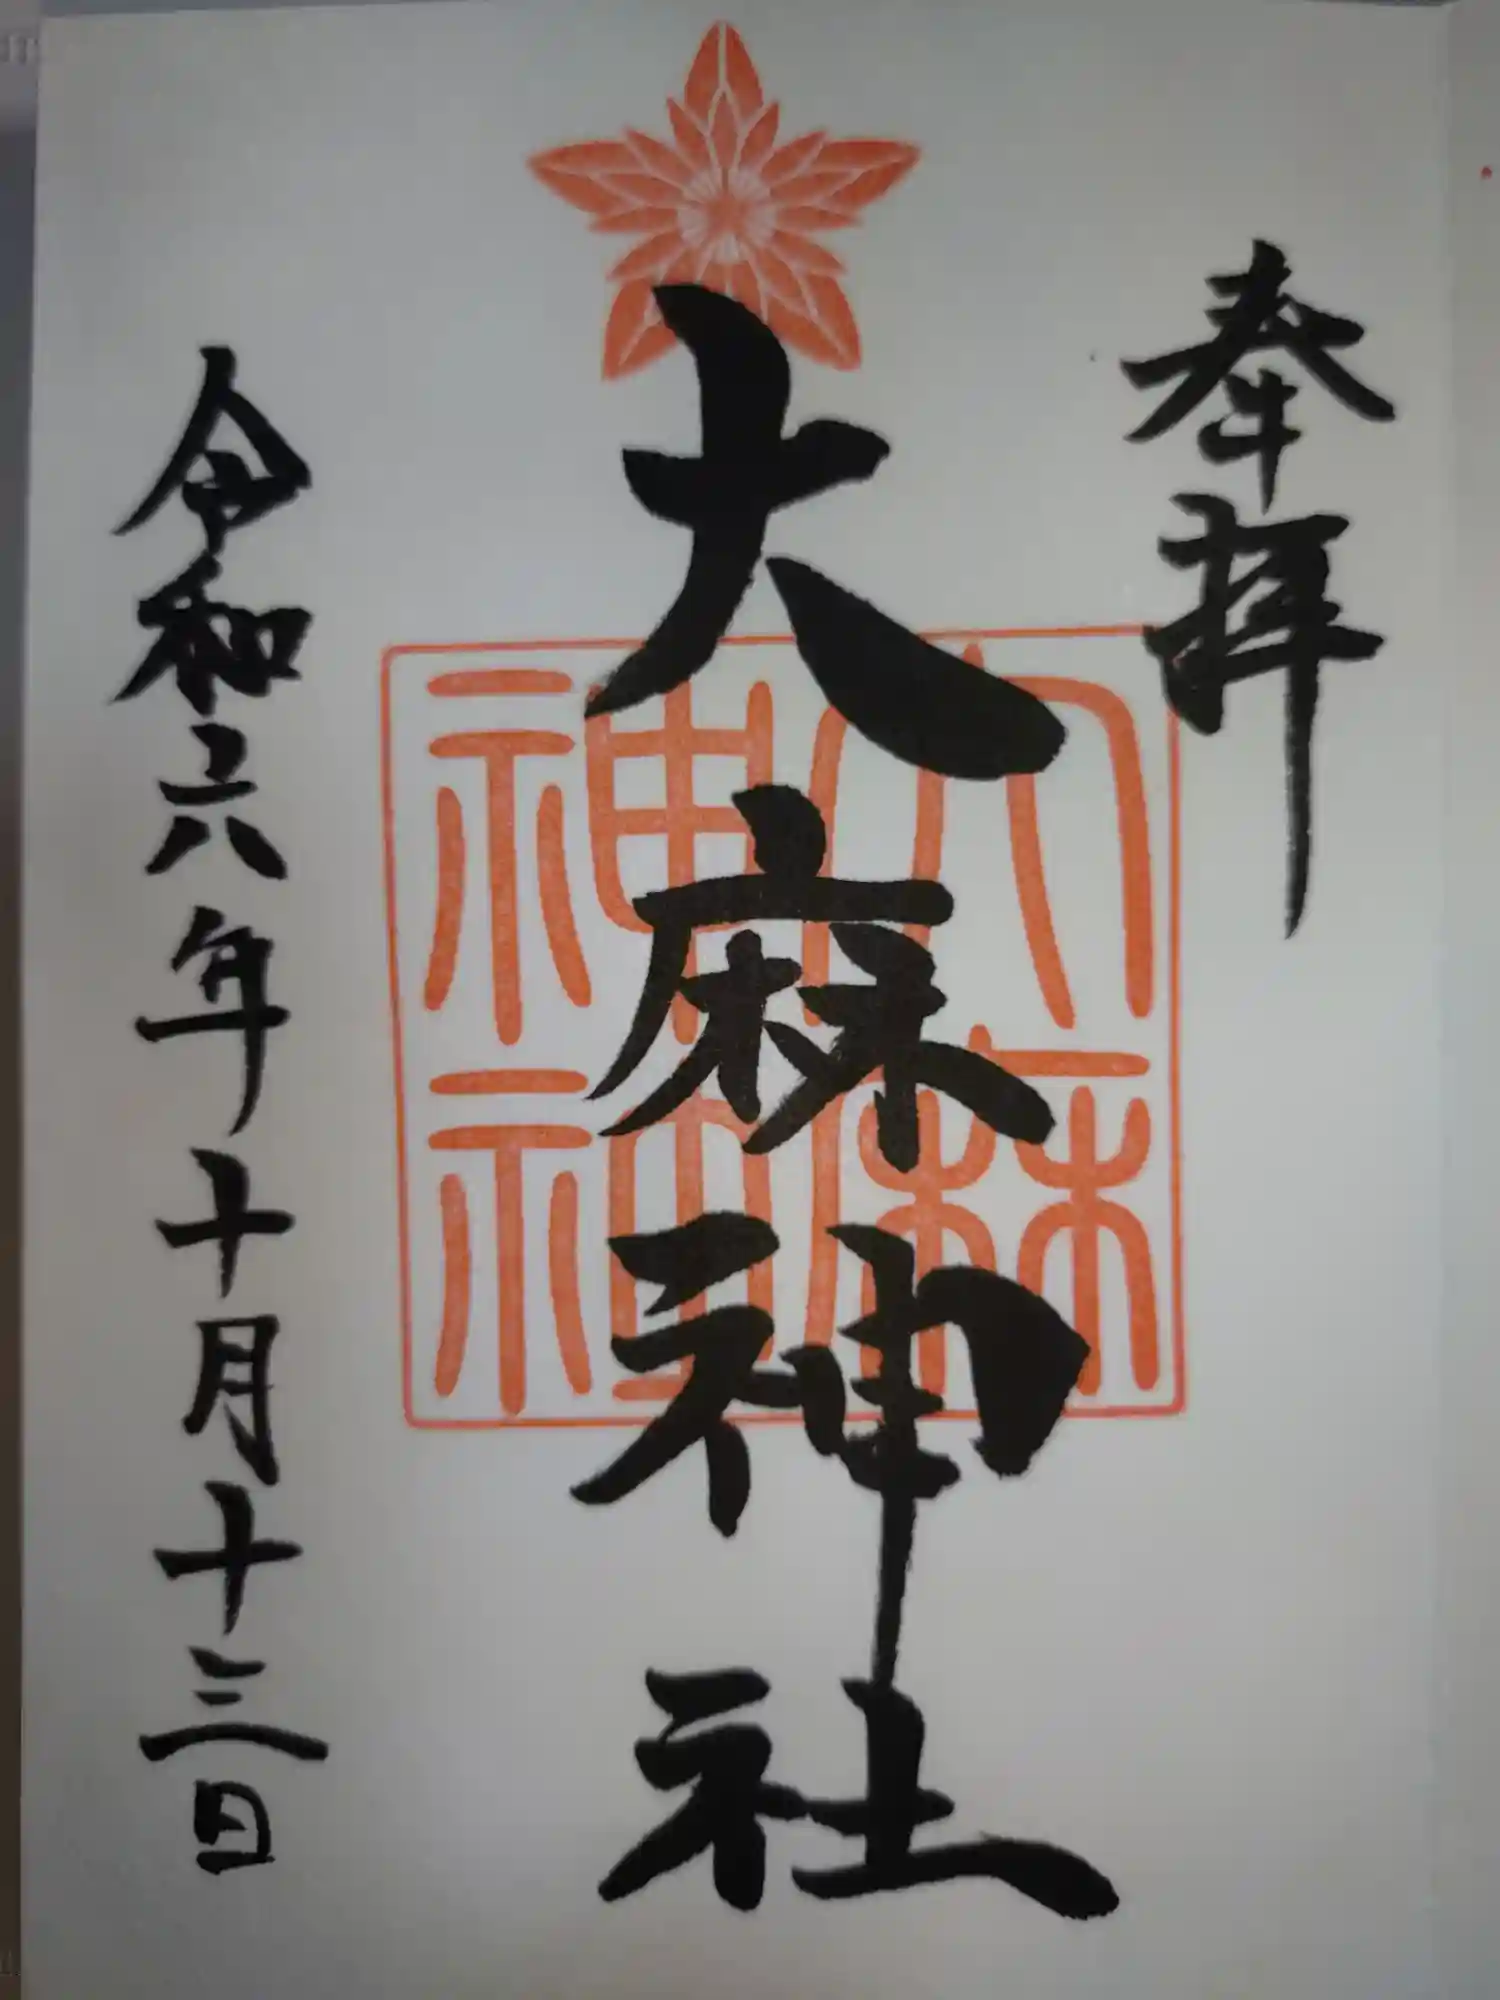 奉拝
大麻神社
大麻神神
令和六年十月十三日